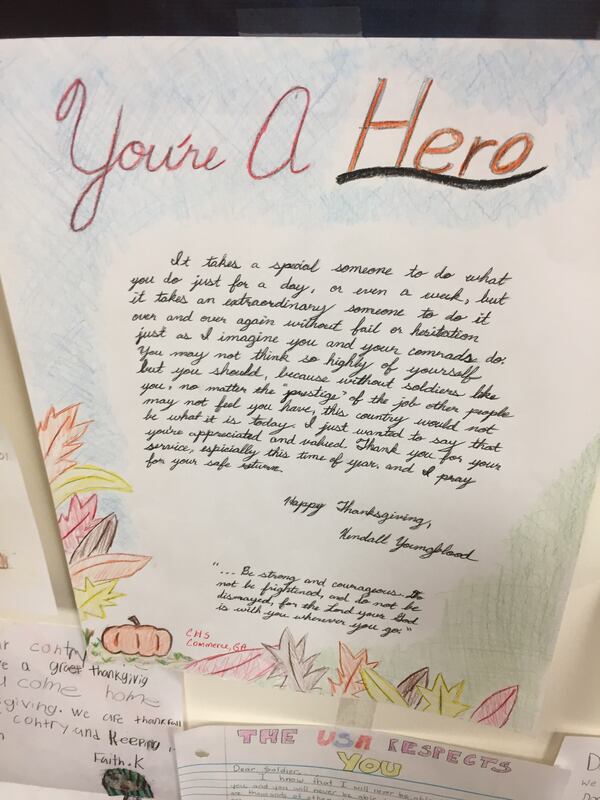 You're A Hero
It takes a special someone to do what
you do just for a day, or even a week, but
it takes an extraordinary someone to do it
over and over again without fail or hesitation
just as I imagine you and your comrads do.
You may not think so highly of yourself
but you should, because without soldiers like
you, no matter the "prestige" of the job other people
may not feel you have, this country would not
be what it is today. I just wanted to say that
you're appreciated and valued. Thank you for your
service, espicially this time of year, and I pray
for your safe return.
Happy Thanksgiving,
Kendall Youngblood
"... Be strong and courageous. Do
not be frightened, and do not be
dismayed, for the Lord your God
is with you wherever you go."
CHS
Commerce, GA
contry
a graet thankgivig
come home
giving. we are thankfull
contry and Keeping
Faith.K
THE USA RESPECTS
YOU
Dear Soldier,
I know that I will never be
you and you will never be
are thousands of other